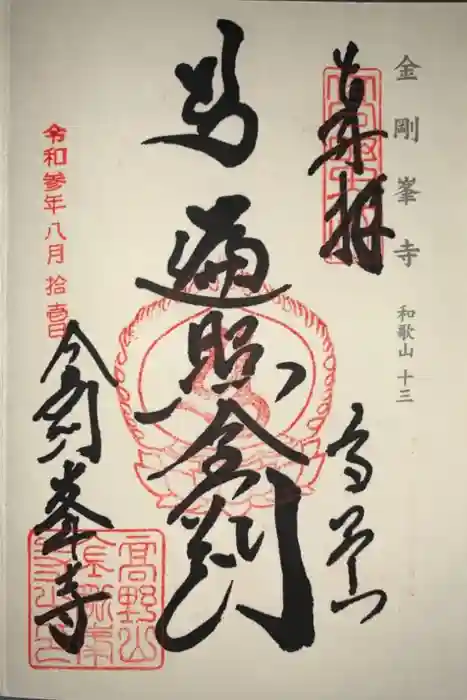 金剛峯寺 和歌山 十三
奉拝
高野山
遍照金剛
令和参年八月拾壱日
金剛峯寺
高野山
金剛峯